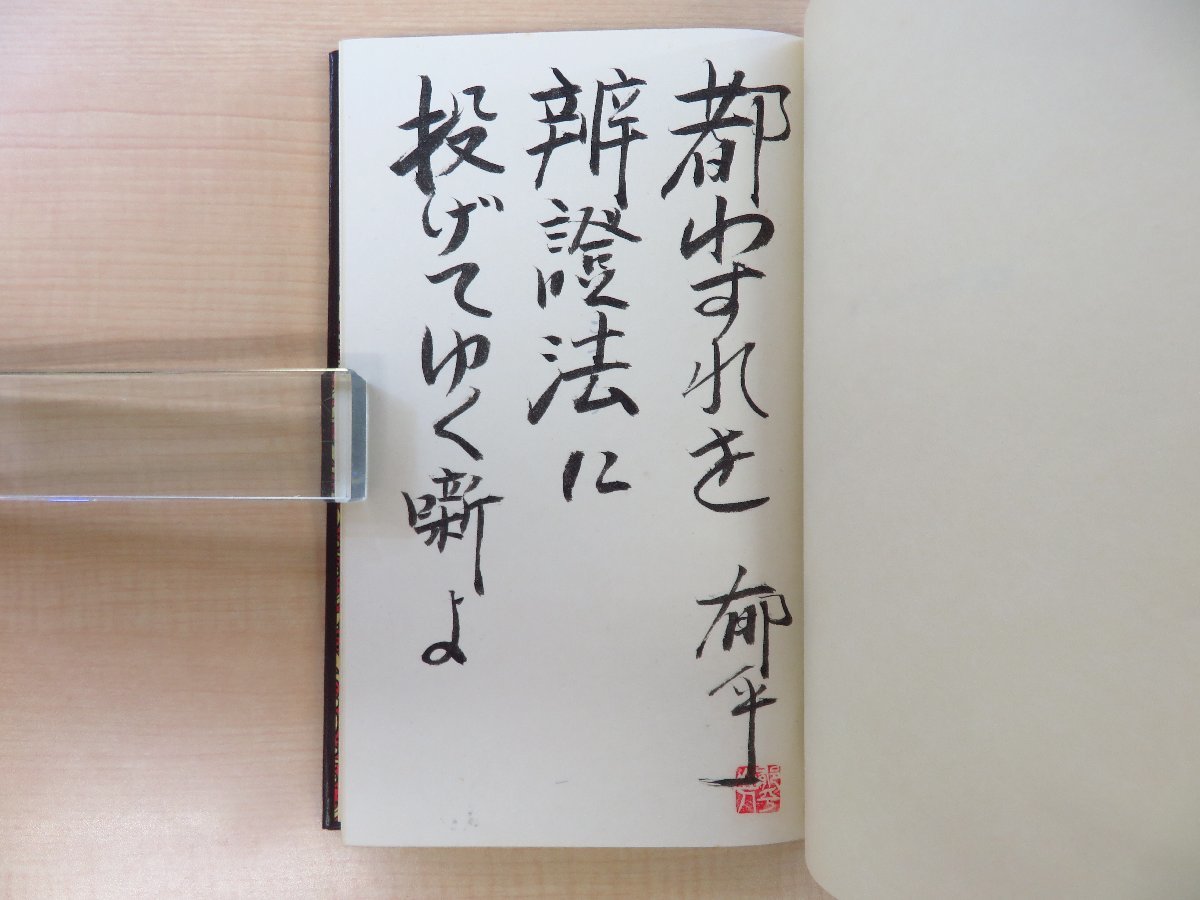 都わすれを 郁乎
辨證法に
投げてゆく噺よ